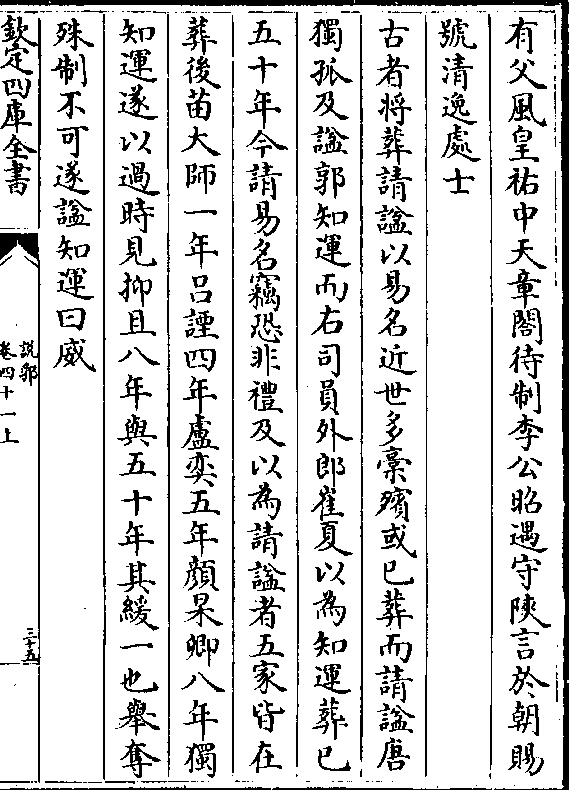 有父風皇祐中天章閣待制李公昭遇守陜言於朝賜
號清逸處士
古者將葬請諡以易名近世多槀殯或已葬而請諡唐
獨孤及諡郭知運而右司員外郎崔夏以為知運葬已
五十年今請易名竊恐非禮及以為請諡者五家皆在
葬後苗大師一年呂諲四年盧奕五年顔杲卿八年獨
知運遂以過時見抑且八年與五十年其緩一也舉奪
殊制不可遂諡知運曰威
欽定四庫全書
說郛
卷四十一上
三十五